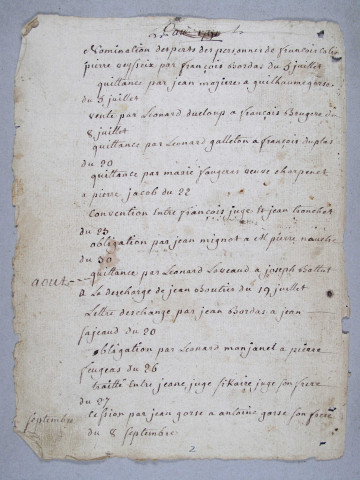 Nomination des perts des personnes de francois
pierre veyssix par francois bordas du 5 juillet
quittance par jean majiere a guilhaume gorse
du 5 juillet
vente par Léonard ducloup a francois Bougere du
8 juillet
quittance par Léonard galleton a francois duplas
du 20
quittance par marie faugeras veuve charpenet
a pierre jacob du 22
convention Entre francois juge et jean tronchot
du 23
obligation par jean mignot a Mr pierre
du 30
aout
quittance par Léonard Laveaud a joseph
a La descharge de jean boutier du 19 juillet
Lettre deschange par jean bordas a jean
sajeaud du 20
obligation par Léonard monjanel a pierre
feugeas du 26
traitté Entre jeane juge sicaire juge son frere
du 27
septembre
cession par jean gorse a antoine gorse son frere
du 8 septembre
2